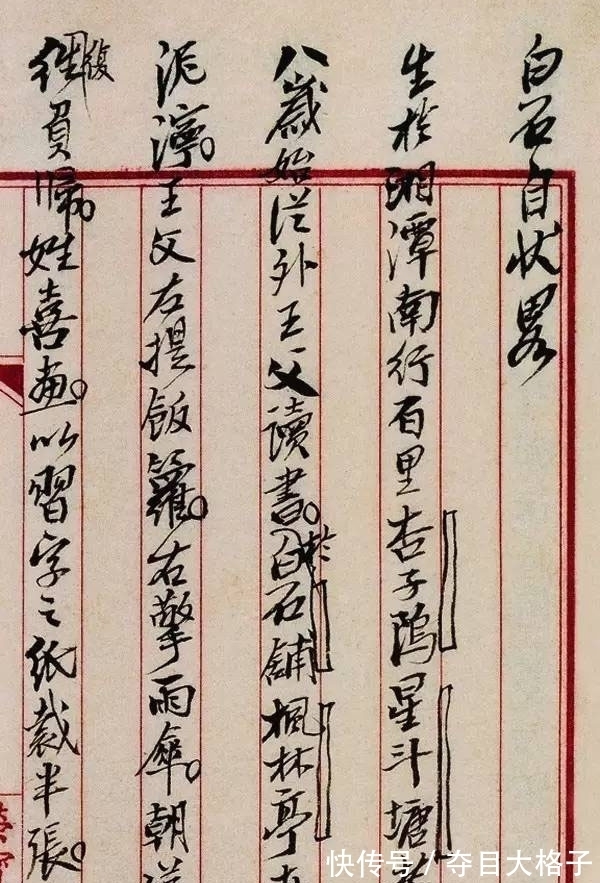 白石自状畧
生於湘潭南行百里杏子隖星斗塘
八歲始從外王父讀書。於白石鋪楓林亭
泥濘。王父左提飯籮。右擎雨傘。朝送
復往負歸。姓喜畫。以習字之紙裁半張。
快传号 / 夺目大格子